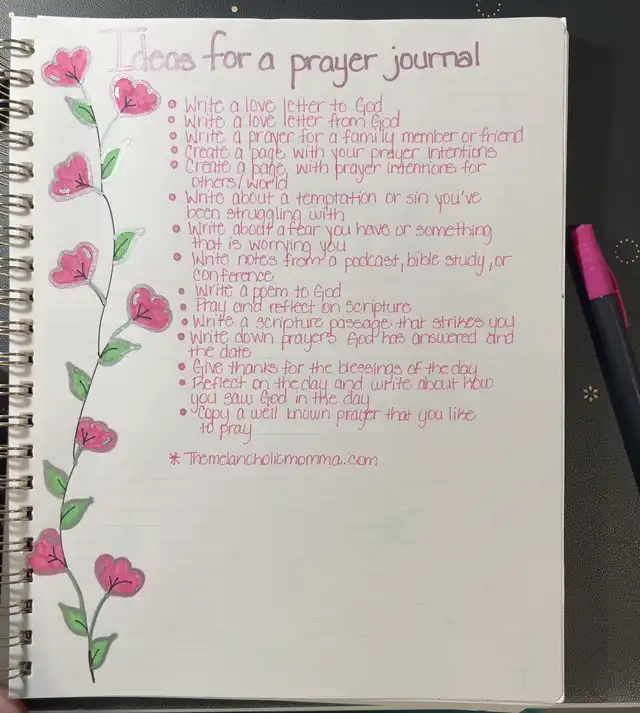 Ideas for a prayer journal
• Write a love letter to God
• Write a love letter from God
• Write a prayer for a family member or friend
• Create a page with your prayer intentions
• Create a page with prayer intentions for
others/world
• Write about a temptation or sin you've
been struggling with
• Write about a fear you have or something
that is worrying you
• Write notes from a podcast, bible study, or
conference
• Write a poem to God
• Pray and reflect on Scripture
• Write a scripture passage that strikes you
• Write down prayers God has answered and
the date
• Give thanks for the blessings of the day
• Reflect on the day and write about how
you saw God in the day
• Copy a well known prayer that you like
to pray
* Themelancholicmomma.com